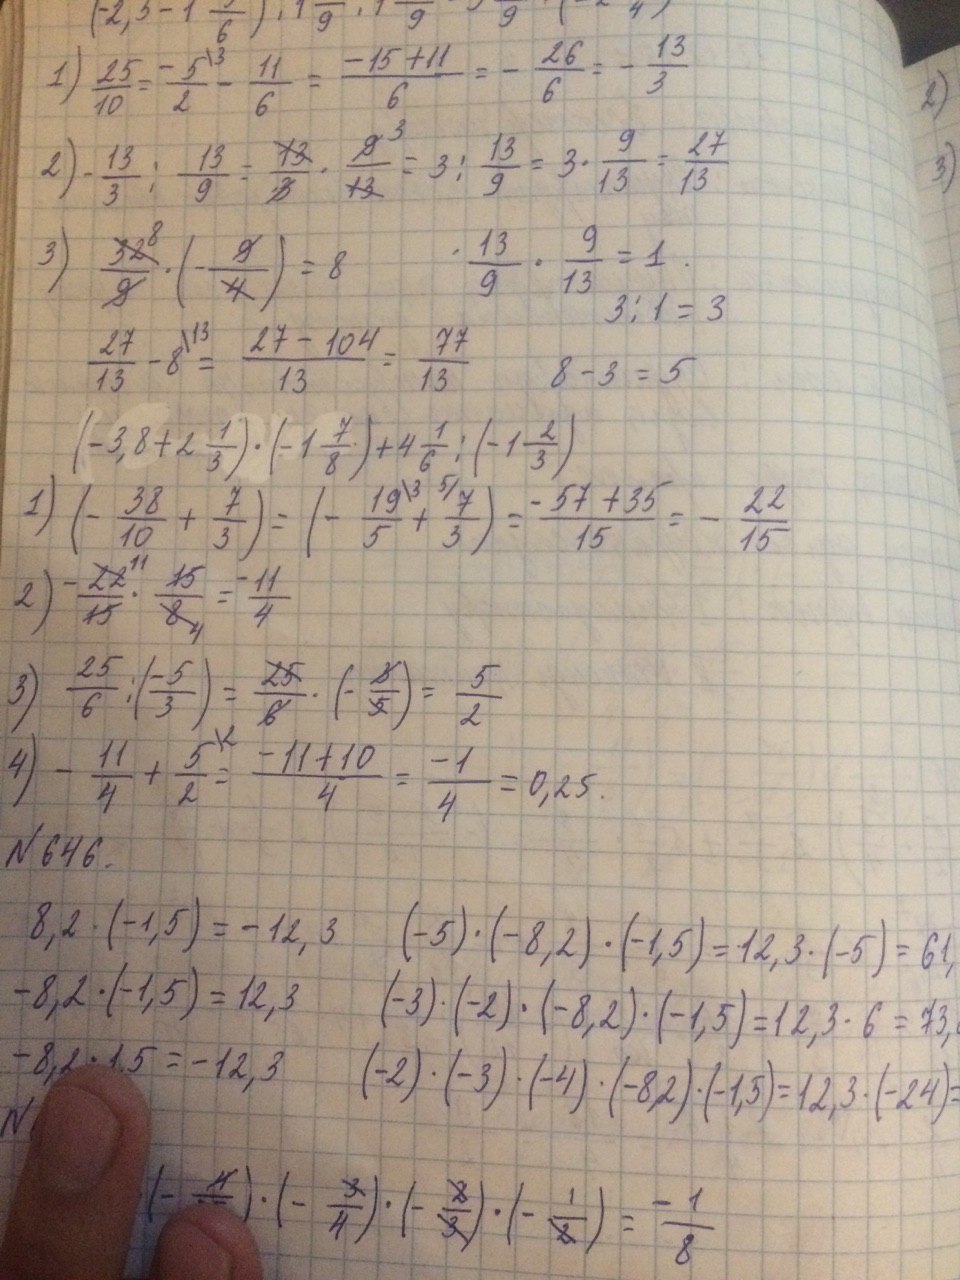 1) 25/10 = -5/2 \3 - 11/6 = (-15+11)/6 = - 26/6 = - 13/3
2) - 13/3 : 13/9 = 13/3 · 9/13 3 = 3 : 13/9 = 3 · 9/13 = 27/13
3) 32/9 8 · (- 9/4) = 8 13/9 · 9/13 = 1.
3 : 1 = 3
27/13 - 8 \13 = (27 - 104)/13 = 77/13 8 - 3 = 5
(-3,8 + 2 1/3) · (-1 7/8) + 4 1/6 : (-1 2/3)
1) (- 38/10 + 7/3) = (- 19/5 \3 + 5/ 7/3) = (-57+35)/15 = - 22/15
2) - 22/15 11 · 15/8 4 = -11/4
3) 25/6 : (-5/3) = 25/6 · (- 3/5) = 5/2
4) - 11/4 + 5/2 \2 = (-11+10)/4 = -1/4 = 0,25.
N 646.
8,2 · (-1,5) = -12,3 (-5) · (-8,2) · (-1,5) = 12,3 · (-5) = 61,
-8,2 · (-1,5) = 12,3 (-3) · (-2) · (-8,2) · (-1,5) = 12,3 · 6 = 73,
-8,2 · 1,5 = -12,3 (-2) · (-3) · (-4) · (-8,2) · (-1,5) = 12,3 · (-24) =
N
· (- 3/4) · (- 2/3) · (- 1/2) = -1/8
2)
3)